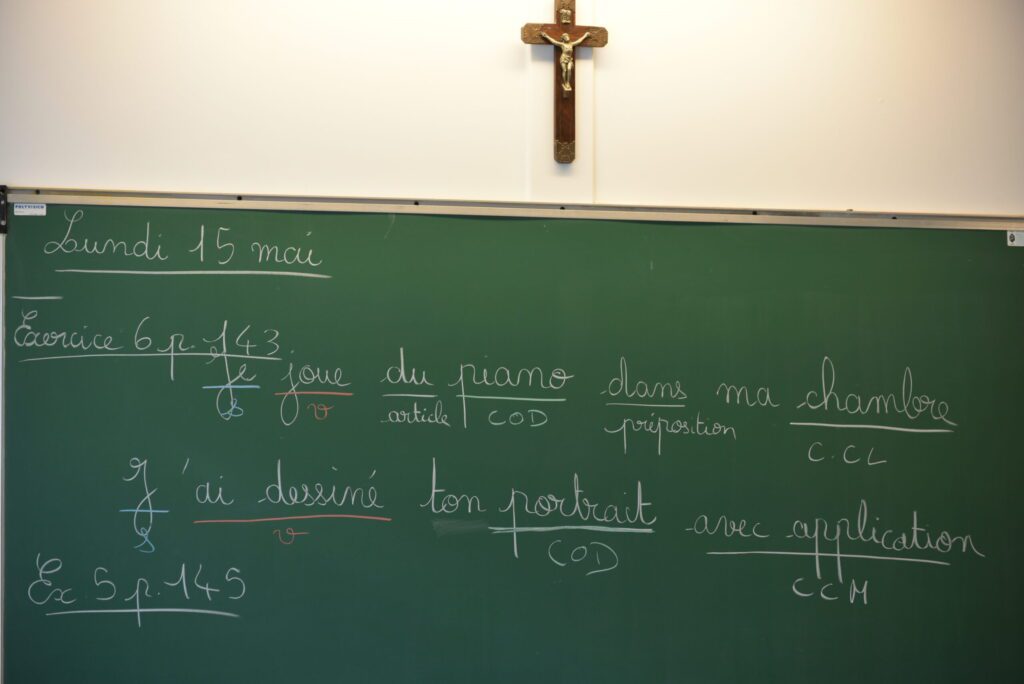 POLYVISION
Lundi 15 mai
Exercice 6 p. 143
Je joue du piano dans ma chambre
s v article COD préposition C.CL
J'ai dessiné ton portrait avec application
s v COD CCM
Ex 5 p. 145